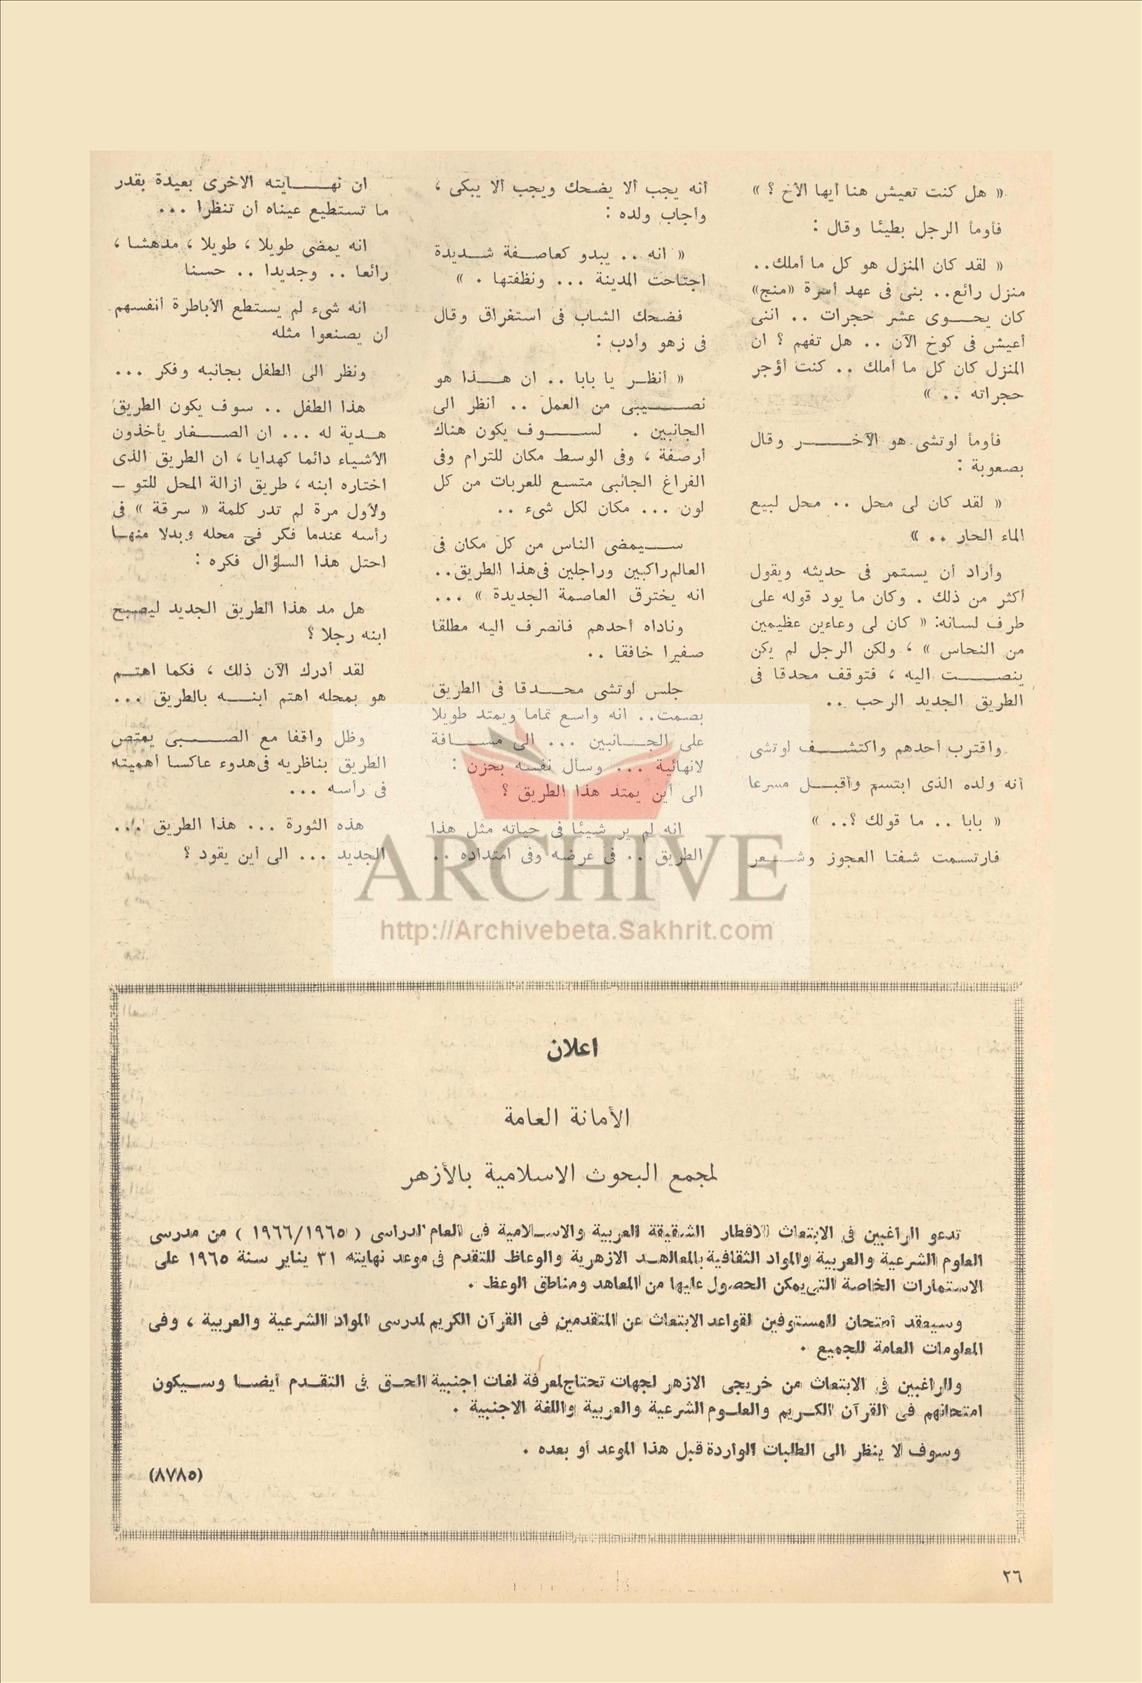 « هل كنت تعيش هنا أيها الأخ ؟ »
فأومأ الرجل بطيئا وقال :
« لقد كان المنزل هو كل ما أملك..
منزل رائع.. بنى فى عهد أسرة «منج»
كان يحـــوى عشر حجرات .. اننى
أعيش فى كوخ الآن .. هل تفهم ؟ ان
المنزل كان كل ما أملك .. كنت أؤجر
حجراته .. »
فأومأ اوتشى هو الآخـــــر وقال
بصعوبة :
« لقد كان لى محل .. محل لبيع
الماء الحار .. »
وأراد أن يستمر فى حديثه ويقول
أكثر من ذلك . وكان ما يود قوله على
طرف لسانه: « كان لى وعاءين عظيمين
من النحاس » ، ولكن الرجل لم يكن
ينصـــــت اليه ، فتوقف محدقا فى
الطريق الجديد الرحب ..
واقترب أحدهم واكتشـــف اوتشى
أنه ولده الذى ابتسم وأقبـــل مسرعا
« بابا .. ما قولك ؟.. »
فارتسمت شفتا العجوز وشـــعر
أنه يجب ألا يضحك ويجب ألا يبكى ،
وأجاب ولده :
« انه .. يبدو كعاصـفة شـديدة
اجتاحت المدينة ... ونظفتها . »
فضحك الشاب فى استغراق وقال
فى زهو وأدب :
« أنظـر يا بابا .. ان هـــذا هو
نصـــيبى من العمل .. أنظر الى
الجانبين . لســـوف يكون هناك
أرصفة ، وفى الوسط مكان للترام وفى
الفراغ الجانبى متسع للعربات من كل
لون ... مكان لكل شىء ..
ســـيمضى الناس من كل مكان فى
العالم راكبين وراجلين فى هذا الطريق..
انه يخترق العاصمة الجديدة » ...
وناداه أحدهم فانصرف اليه مطلقا
صفيرا خافقا ..
جلس اوتشى محـــدقا فى الطريق
بصمت.. انه واسع تماما ويمتد طويلا
على الجـــانبين ... الى مســـافة
لانهائية ... وسأل نفسه بحزن :
الى أين يمتد هذا الطريق ؟
انه لم ير شيئا فى حياته مثل هذا
الطريق .. فى عرضه وفى امتداده ..
ان نهـــايته الأخرى بعيدة بقدر
ما تستطيع عيناه أن تنظرا ...
انه يمضى طويلا ، طويلا ، مدهشا ،
رائعا .. وجديدا .. حسنا
انه شىء لم يستطع الأباطرة أنفسهم
ان يصنعوا مثله
ونظر الى الطفل بجانبه وفكر ...
هذا الطفل .. سوف يكون الطريق
هـدية له ... ان الصـــغار يأخذون
الأشياء دائما كهدايا ، ان الطريق الذى
اختاره ابنه ، طريق ازالة المحل للتو ـ
ولأول مرة لم تدر كلمة « سرقة » فى
رأسه عندما فكر فى محله وبدلا منهـا
احتل هذا السؤال فكره :
هل مد هذا الطريق الجديد ليصبح
ابنه رجلا ؟
لقد أدرك الآن ذلك ، فكما اهتـم
هو بمحله اهتم ابنـــه بالطريق ...
وظل واقفا مع الصـــبى يمتص
الطريق بناظريه فى هدوء عاكسا أهميته
فى رأسه ...
هذه الثورة ... هذا الطريق ...
الجديد ... الى أين يقود ؟
ARCHIVE
http://Archivebeta.Sakhrit.com
اعلان
الأمانة العامة
لمجمع البحوث الاسلامية بالأزهر
تدعو الراغبين فى الابتعاث للاقطار الشقيقة العربية والاسـلامية فى العام الدراسى ( ١٩٦٥/١٩٦٦ ) من مدرسى
العلوم الشرعية والعربية والمواد الثقافية بالمعاهــد الازهرية والوعاظ للتقدم فى موعد نهايته ٣١ يناير سنة ١٩٦٥ على
الاستمارات الخاصة التى يمكن الحصول عليها من المعاهد ومناطق الوعظ .
وسيعقد امتحان للمستوفين لقواعد الابتعاث عن المتقدمين فى القرآن الكريم لمدرسى المواد الشرعية والعربية ، وفى
المعلومات العامة للجميع .
وللراغبين فى الابتعاث من خريجى الازهر لجهات تحتاج لمعرفة لغات اجنبية الحـق فى التقـدم أيضـا وسـيكون
امتحانهم فى القرآن الكـريم والعلـوم الشرعية والعربية واللغة الاجنبية .
وسوف لا ينظر الى الطلبات الواردة قبل هذا الموعد أو بعده .
(٨٧٨٥)
٢٦